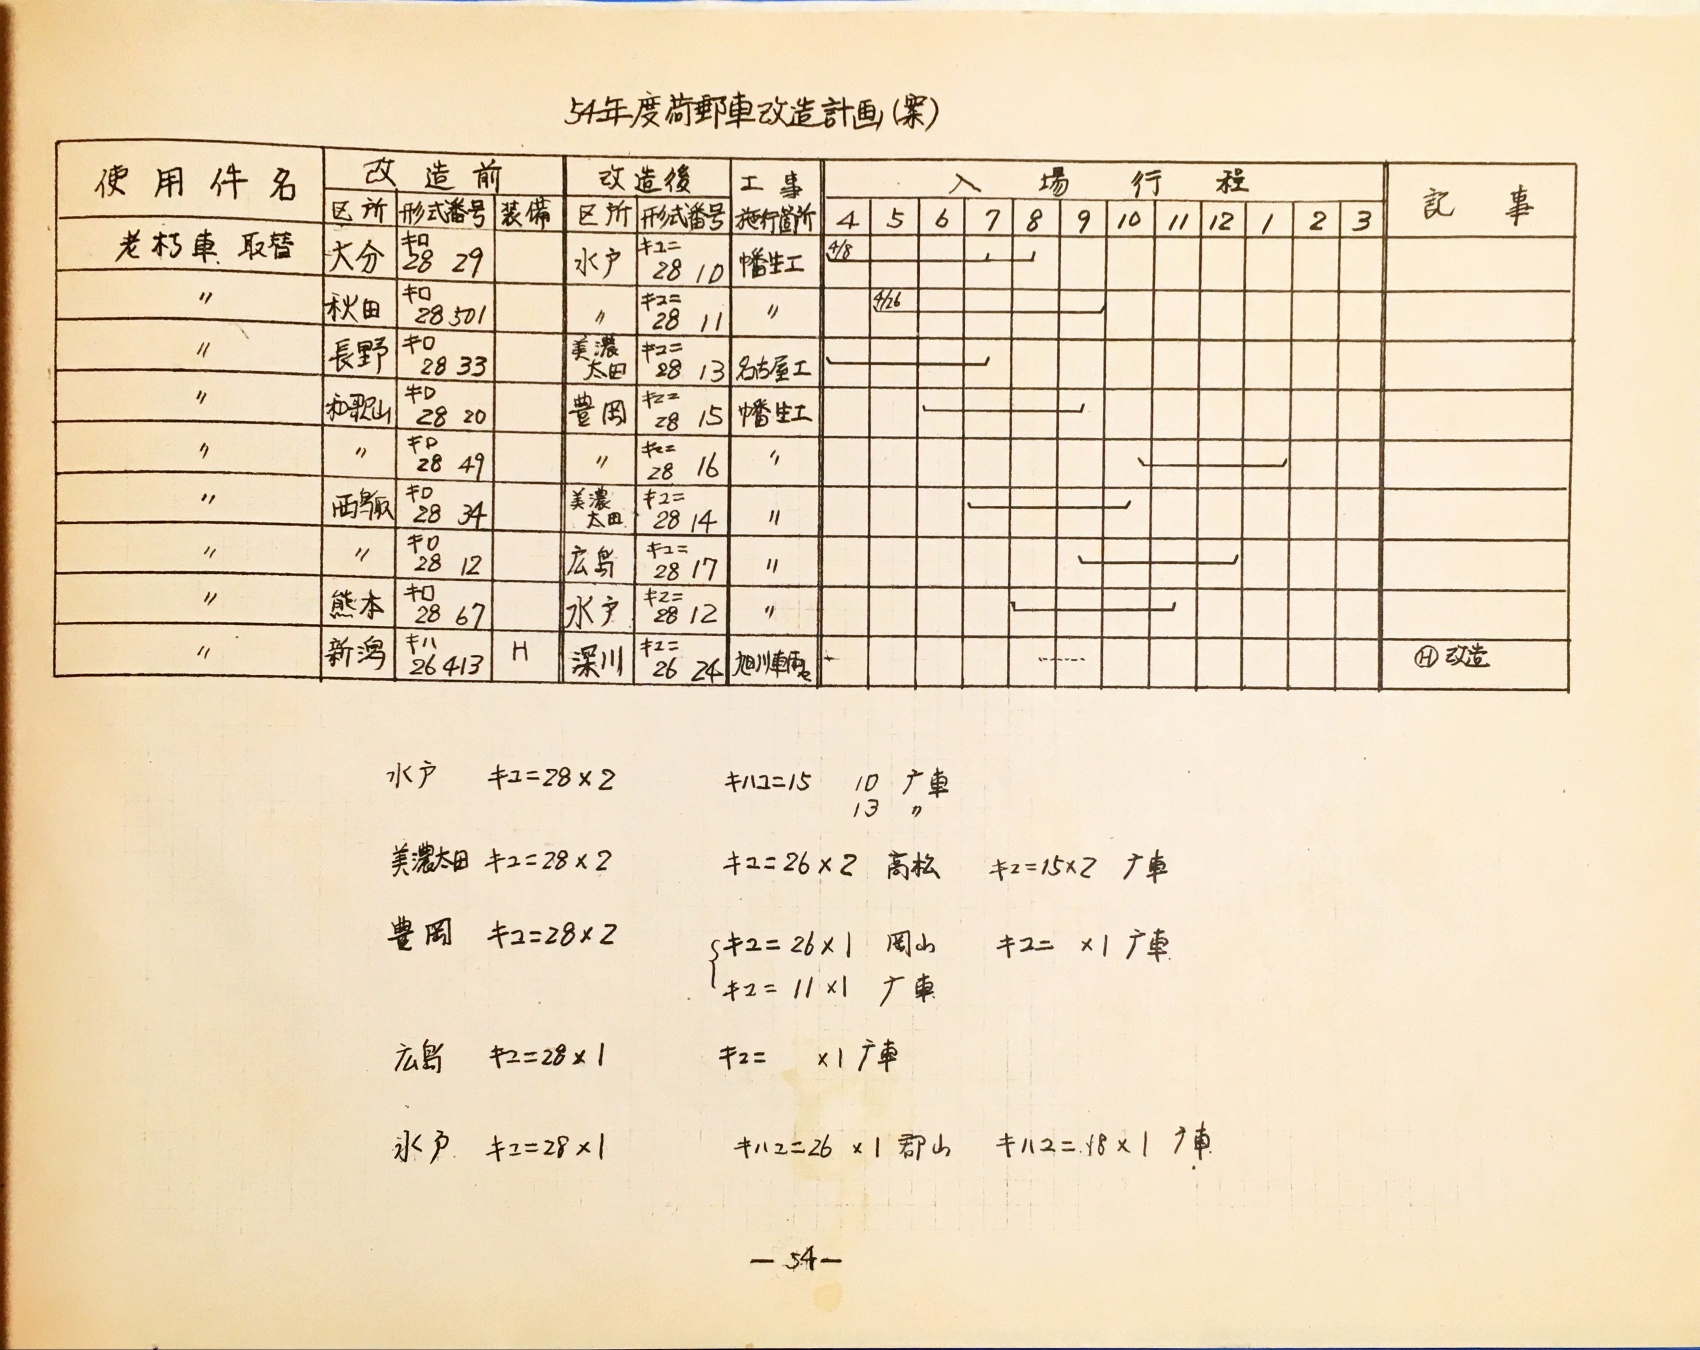 54年度荷郵車改造計画(案)
使用件名 改造前 改造後 工事施行箇所 入場行程 記事
区所 形式番号 装備 区所 形式番号 4 5 6 7 8 9 10 11 12 1 2 3
老朽車取替 大分 キロ28 29 水戸 キユニ28 10 幡生工 4/8
〃 秋田 キロ28 501 〃 キユニ28 11 〃 4/26
〃 長野 キロ28 33 美濃太田 キユニ28 13 名古屋工
〃 和歌山 キロ28 20 豊岡 キユニ28 15 幡生工
〃 〃 キロ28 49 〃 キユニ28 16 〃
〃 西鳥取 キロ28 34 美濃太田 キユニ28 14 〃
〃 〃 キロ28 12 広島 キユニ28 17 〃
〃 熊本 キロ28 67 水戸 キユニ28 12 〃
〃 新潟 キハ26 413 H 深川 キユニ26 24 旭川車両セ Ⓗ改造
水戸 キユニ28×2 キハユニ15 10 广車
13 〃
美濃太田 キユニ28×2 キユニ26×2 高松 キユニ15×2 广車
豊岡 キユニ28×2 キユニ26×1 岡山 キユニ ×1 广車
キユニ 11×1 广車
広島 キユニ28×1 キユニ ×1 广車
水戸 キユニ28×1 キハユニ26×1 郡山 キハユニ 18×1 广車
－54－